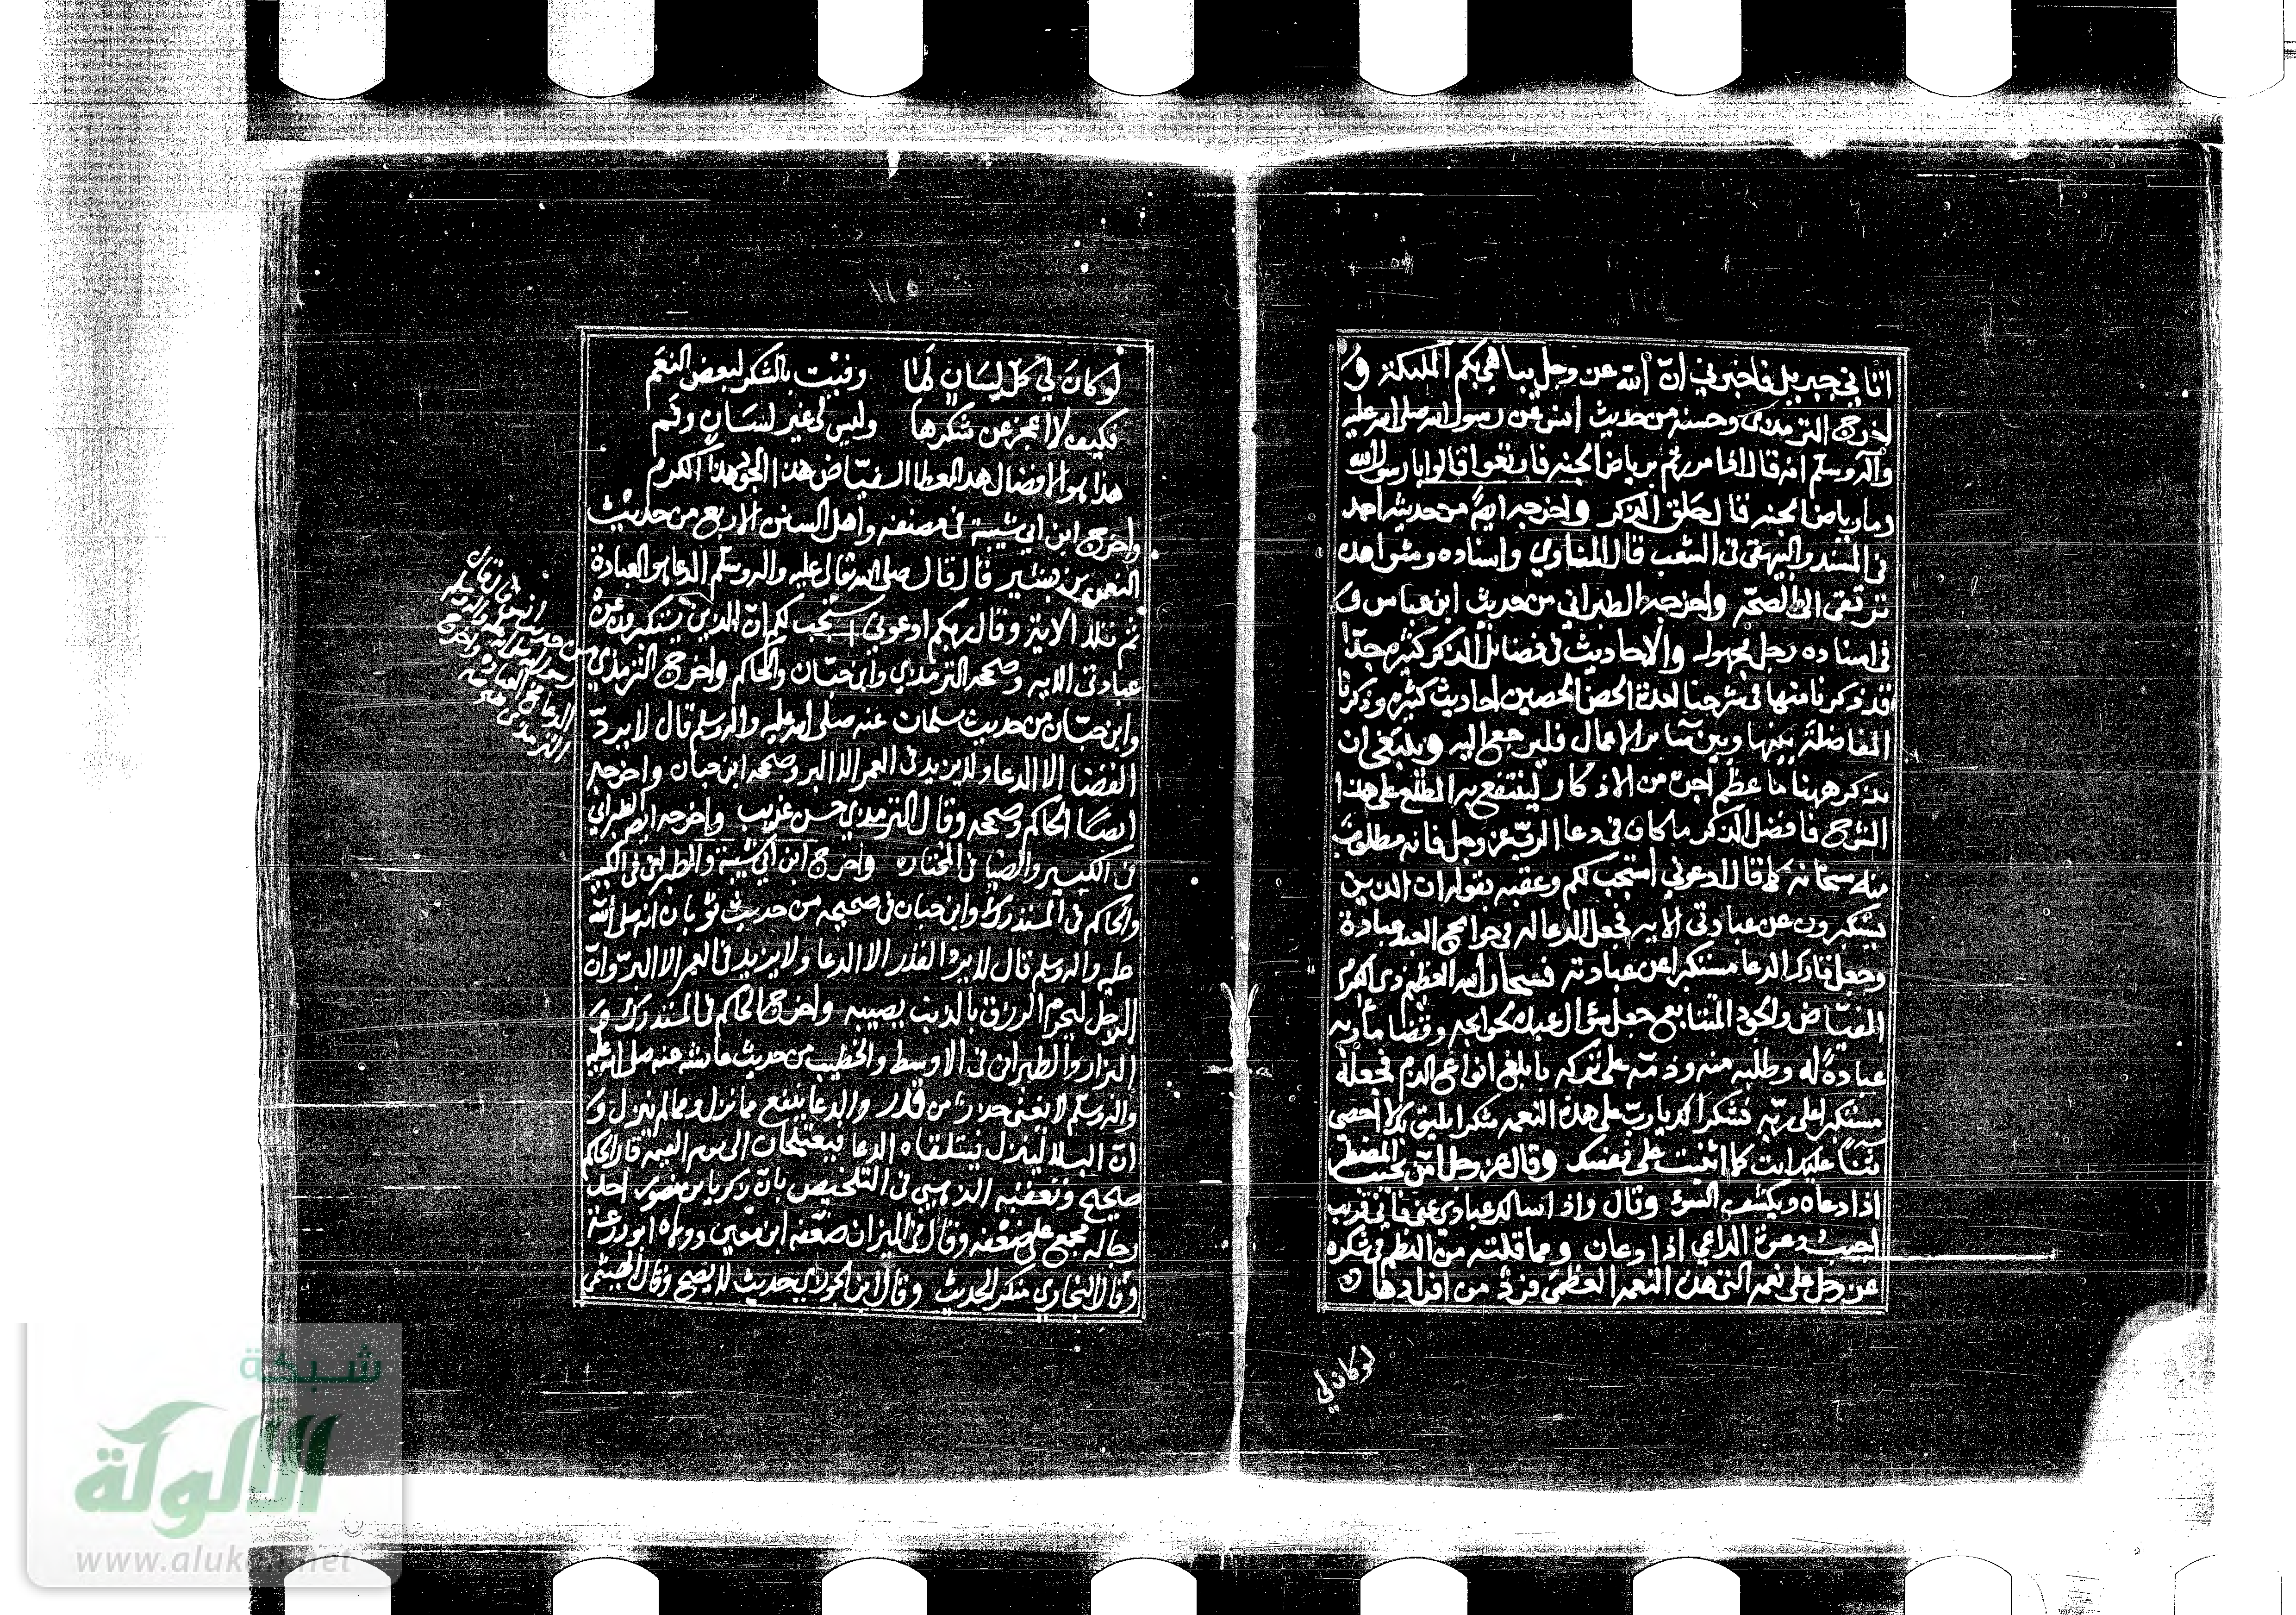 اتاني جبريل فاخبرني ان الله عز وجل يباهي بكم الملئكة و
اخرج الترمذي وحسنه من حديث انس عن رسول الله صلى الله عليه
وآله وسلم انه قال اذا مررتم برياض الجنه فارتعوا قالوا يا رسول الله
وما رياض الجنه قال حلق الذكر واخرجه ايضا من حديثه احمد
في المسند والبيهقي في الشعب قال المناوي واسناده وشواهده
ترتقي الى الصحه واخرجه الطبراني من حديث ابن عباس و
في اسناده رجل مجهول والاحاديث في فضائل الذكر كثيره جدا
قد ذكرنا منها في شرحنا لعدة الحصن الحصين احاديث كثيره وذكرنا
المفاضلة بينها وبين سائر الاعمال فليرجع اليه وينبغي ان
نذكر ههنا ما عظم اجره من الاذكار لينتفع به المطلع على هذا
الشرح فافضل الذكر ما كان في دعا الرب عز وجل فانه مطلوب
منه سبحانه كما قال ادعوني استجب لكم وعقبه بقوله ان الذين
يستكبرون عن عبادتي الايه فجعل الدعا له في حوائج العبد عبادة
وجعل تارك الدعا مستكبرا عن عبادته فسبحان الله العظيم ذي الكرم
الفياض والجود المتتابع جعل سؤال عبده لحوائجه وقضا مأربه
عبادة له وطلبه منه وذمه على تركه بابلغ انواع الذم فجعله
مستكبرا على ربه فشكرا لك يا رب على هذه النعمه شكرا يليق بك لا احصي
ثناً عليك انت كما اثنيت على نفسك وقال عز وجل امن يجيب المضطر
اذا دعاه ويكشف السؤ وقال واذا سألك عبادي عني فاني قريب
اجيب دعوة الداعي اذا دعان ومما قلته من النظم في شكره
عز وجل على نعمه التي هذه النعمه العظمى فرد من افرادها
لو كان لي
لو كان لي كل لسان لما وفيت بالشكر لبعض النعم
فكيف لا اعجز عن شكرها وليس لي غير لسان وفم
هذا هو الافضال هذا العطا الفياض هذا الجود هذا الكرم
واخرج ابن ابي شيبة في مصنفه واهل السنن الاربع من حديث
النعمن بن بشير قال قال صلى الله تعالى عليه واله وسلم الدعا هو العبادة
ثم تلا الاية وقال ربكم ادعوني استجب لكم ان الذين يستكبرون عن
عبادتي الايه وصححه الترمذي وابن حبان والحاكم واخرج الترمذي
من حديث انس قال قال
رسول الله صلى الله عليه واله وسلم
الدعا مخ العبادة واخرج
الترمذي
وابن حبان من حديث سلمان عنه صلى الله عليه واله وسلم قال لا يرد
القضا الا الدعا ولا يزيد في العمر الا البر وصححه ابن حبان واخرجه
ايضًا الحاكم وصححه وقال الترمذي حسن غريب واخرجه ايضا الطبراني
في الكبير والضيا في المختاره واخرج ابن ابي شيبة والطبراني في الكبير
والحاكم في المستدرك وابن حبان في صحيحه من حديث ثوبان انه صلى الله
عليه واله وسلم قال لا يرد القدر الا الدعا ولا يزيد في العمر الا البر وان
الرجل ليحرم الرزق بالذنب يصيبه واخرج الحاكم في المستدرك و
البزار والطبراني في الاوسط والخطيب من حديث عائشه عنه صلى الله عليه
واله وسلم لا يغني حذر من قدر والدعا ينفع مما نزل ومما لم ينزل و
ان البلا لينزل فيتلقاه الدعا فيعتلجان الى يوم القيمة قال الحاكم
صحيح وتعقبه الذهبي في التلخيص بان زكريا بن منصور احد
رجاله مجمع على ضعفه وقال في الميزان ضعفه ابن معين ووهاه ابو زرعة
وقال البخاري منكر الحديث وقال ابن الجوزي حديث لا يصح وقال الهيثمي
شبكة
الألوكة
www.alukah.net